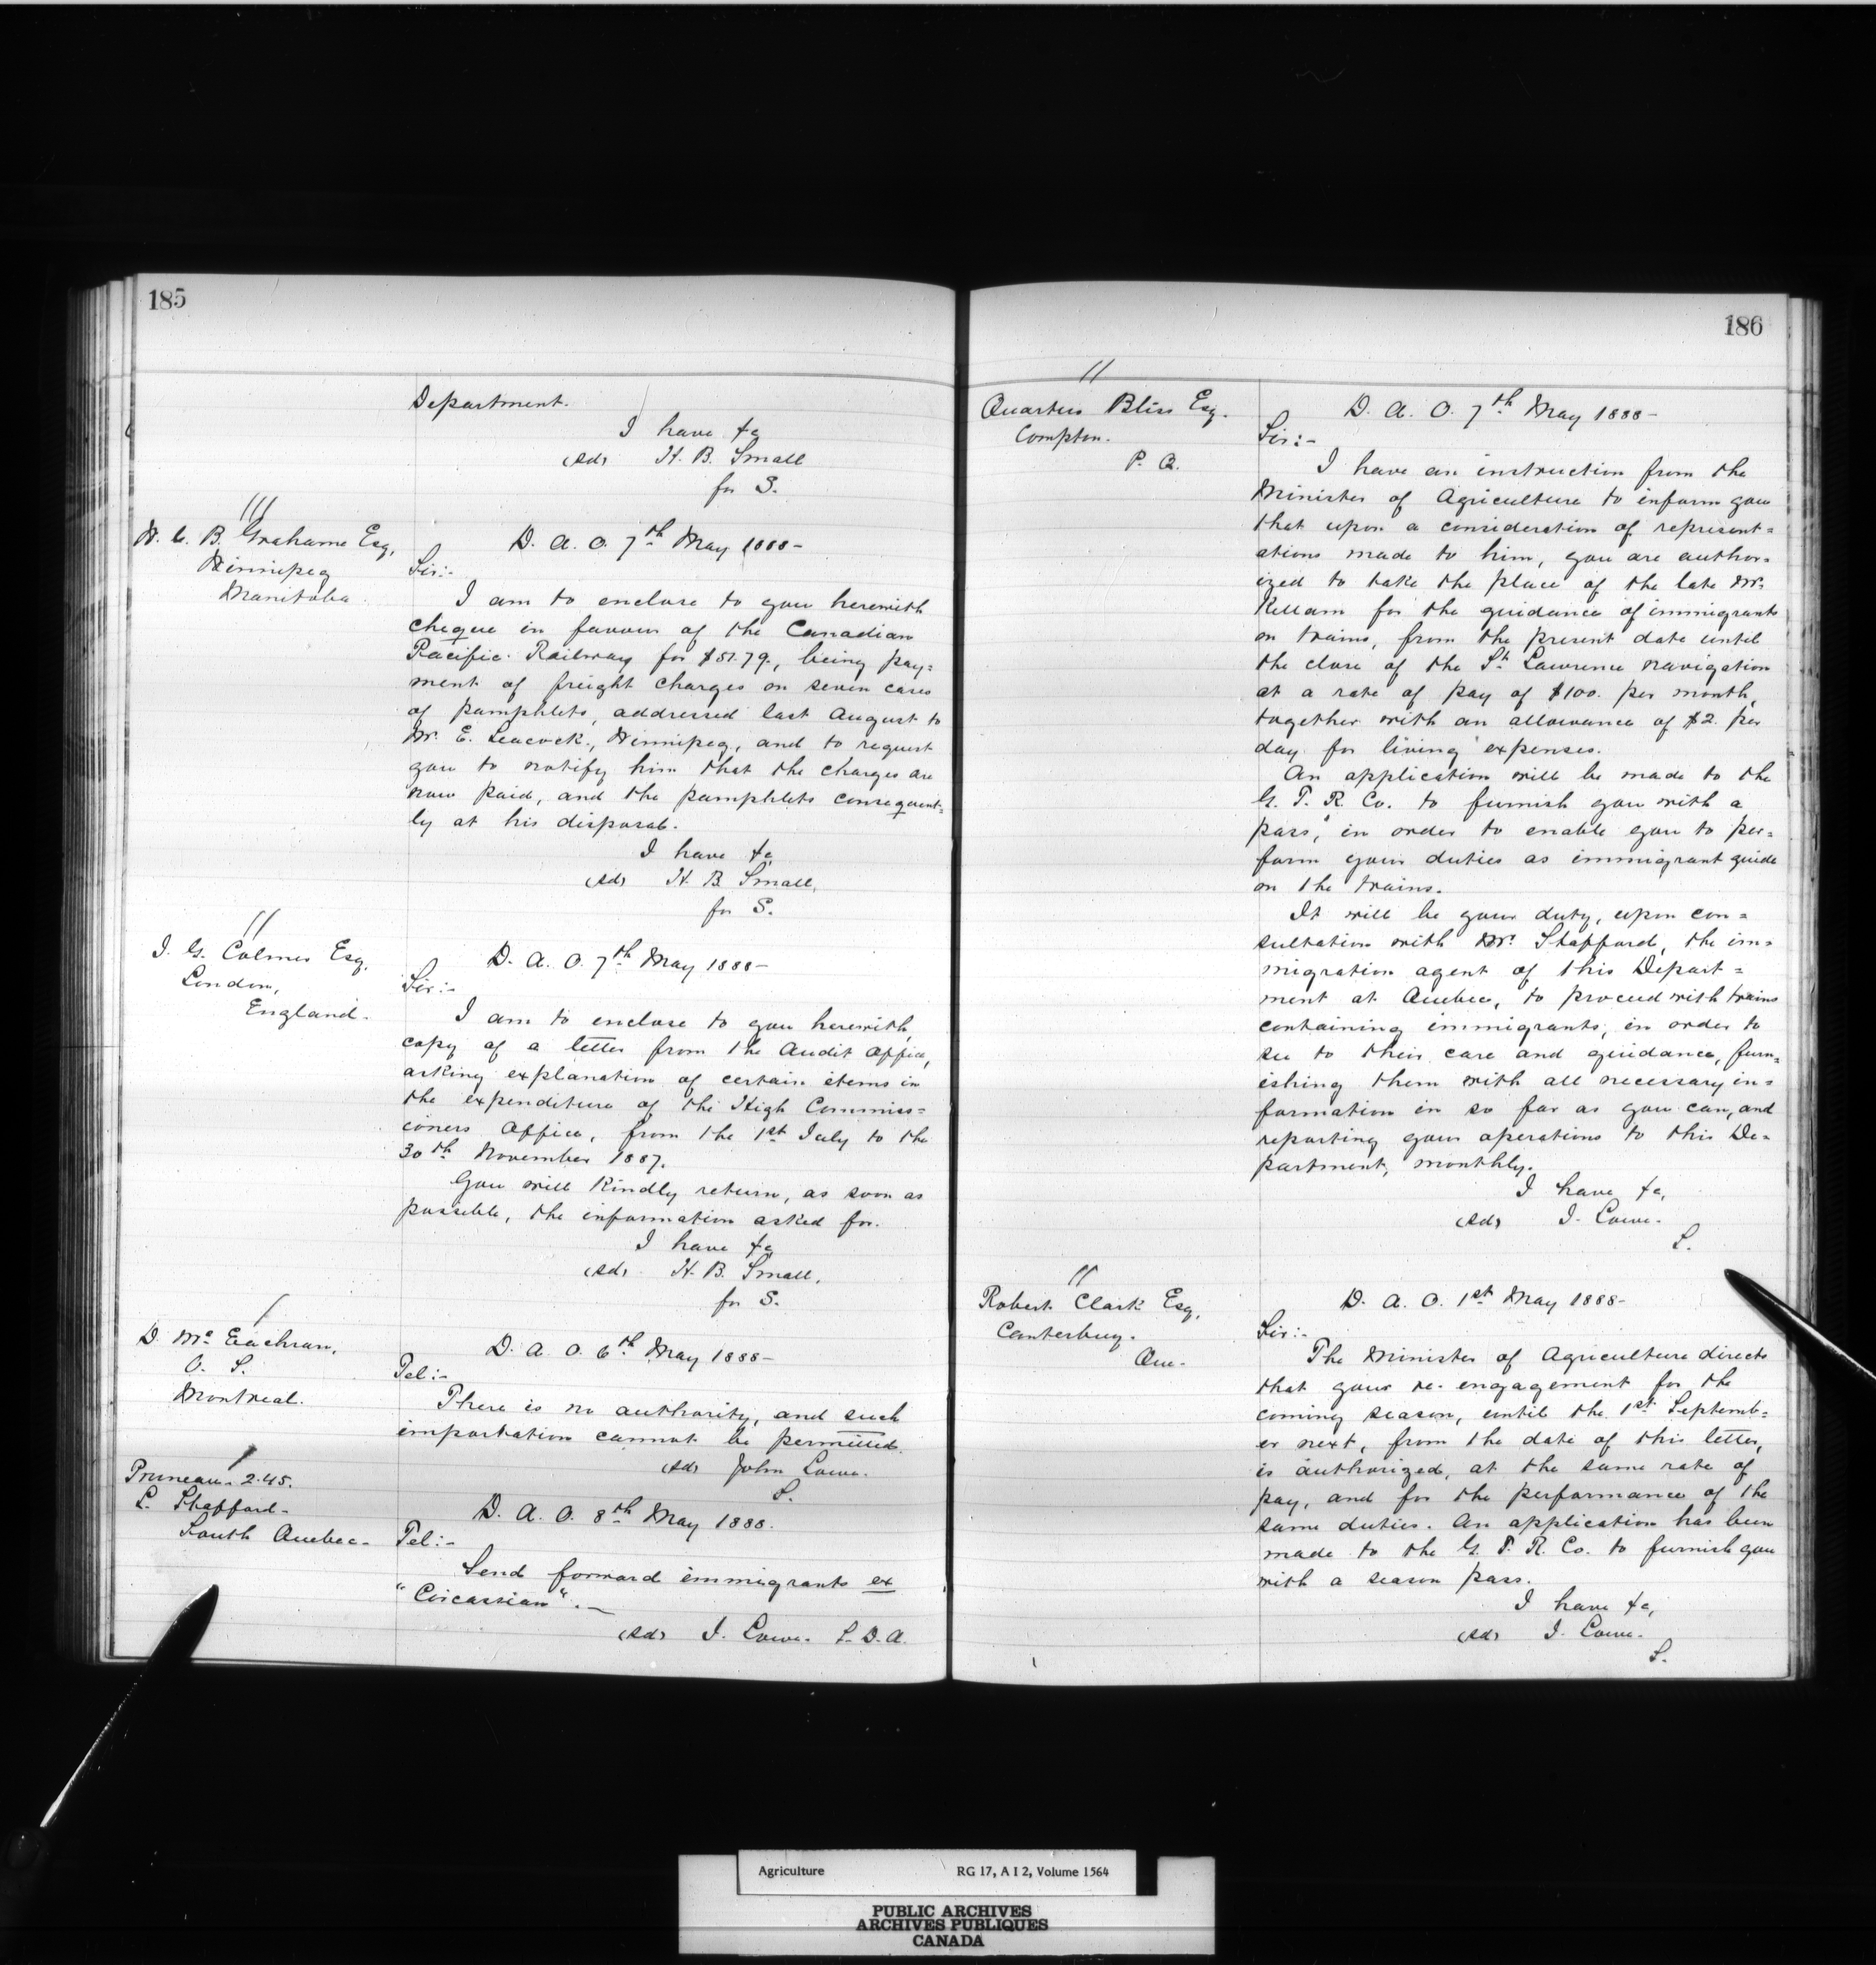 185
Department.
I have &c
(sd) H. B. Small
for S.
W. C. B. Grahame Esq,
Winnipeg
Manitoba
D. A. O. 7th May 1888-
Sir:-
I am to enclose to you herewith
cheque in favour of the Canadian
Pacific Railway for $51.79, being pay=
ment of freight charges on seven cases
of pamphlets, addressed last August to
Mr. E. Leacock, Winnipeg, and to request
you to notify him that the charges are
now paid, and the pamphlets consequent=
ly at his disposal.
I have &c
(sd) H. B. Small,
for S.
J. G. Colmer Esq.
London,
England.
D. A. O. 7th May 1888-
Sir:-
I am to enclose to you herewith,
copy of a letter from the Audit Office,
asking explanation of certain items in
the expenditure of the High Commiss=
ioners Office, from the 1st July to the
30th November 1887.
You will kindly return, as soon as
possible, the information asked for.
I have &c
(sd) H. B. Small,
for S.
D. Mc Eachran,
V. S.
Montreal.
D. A. O. 6th May 1888-
Tel:-
There is no authority, and such
importation cannot be permitted.
(sd) John Lowe.
S.
Pruneau - 2.45.
L. Stafford-
South Quebec-
D. A. O. 8th May 1888.
Tel:-
Send forward immigrants ex
"Circassian".-
(sd) J. Lowe. S. D. A.
186
Quartus Bliss Esq.
Compton.
P. Q.
D. A. O. 7th May 1888-
Sir:-
I have an instruction from the
Minister of Agriculture to inform you
that upon a consideration of represent=
ations made to him, you are author=
ized to take the place of the late Mr.
Kellam for the guidance of immigrants
on trains, from the present date until
the close of the St Lawrence navigation
at a rate of pay of $100. per month,
together with an allowance of $2. per
day for living expenses.
An application will be made to the
G. T. R. Co. to furnish you with a
pass, in order to enable you to per=
form your duties as immigrant guide
on the trains.
It will be your duty, upon con=
sultation with Mr. Stafford, the im=
migration agent of this Depart=
ment at Quebec, to proceed with trains
containing immigrants, in order to
see to their care and guidance, furn=
ishing them with all necessary in=
formation in so far as you can, and
reporting your operations to this De=
partment, monthly.
I have &c,
(sd) J. Lowe.
S.
Robert Clark Esq,
Canterbury.
Que.
D. A. O. 1st May 1888-
Sir:-
The Minister of Agriculture directs
that your re-engagement for the
coming season, until the 1st Septemb=
er next, from the date of this letter,
is authorized, at the same rate of
pay, and for the performance of the
same duties. An application has been
made to the G. T. R. Co. to furnish you
with a season pass.
I have &c,
(sd) J. Lowe.
S.
Agriculture RG 17, A I 2, Volume 1564
PUBLIC ARCHIVES
ARCHIVES PUBLIQUES
CANADA